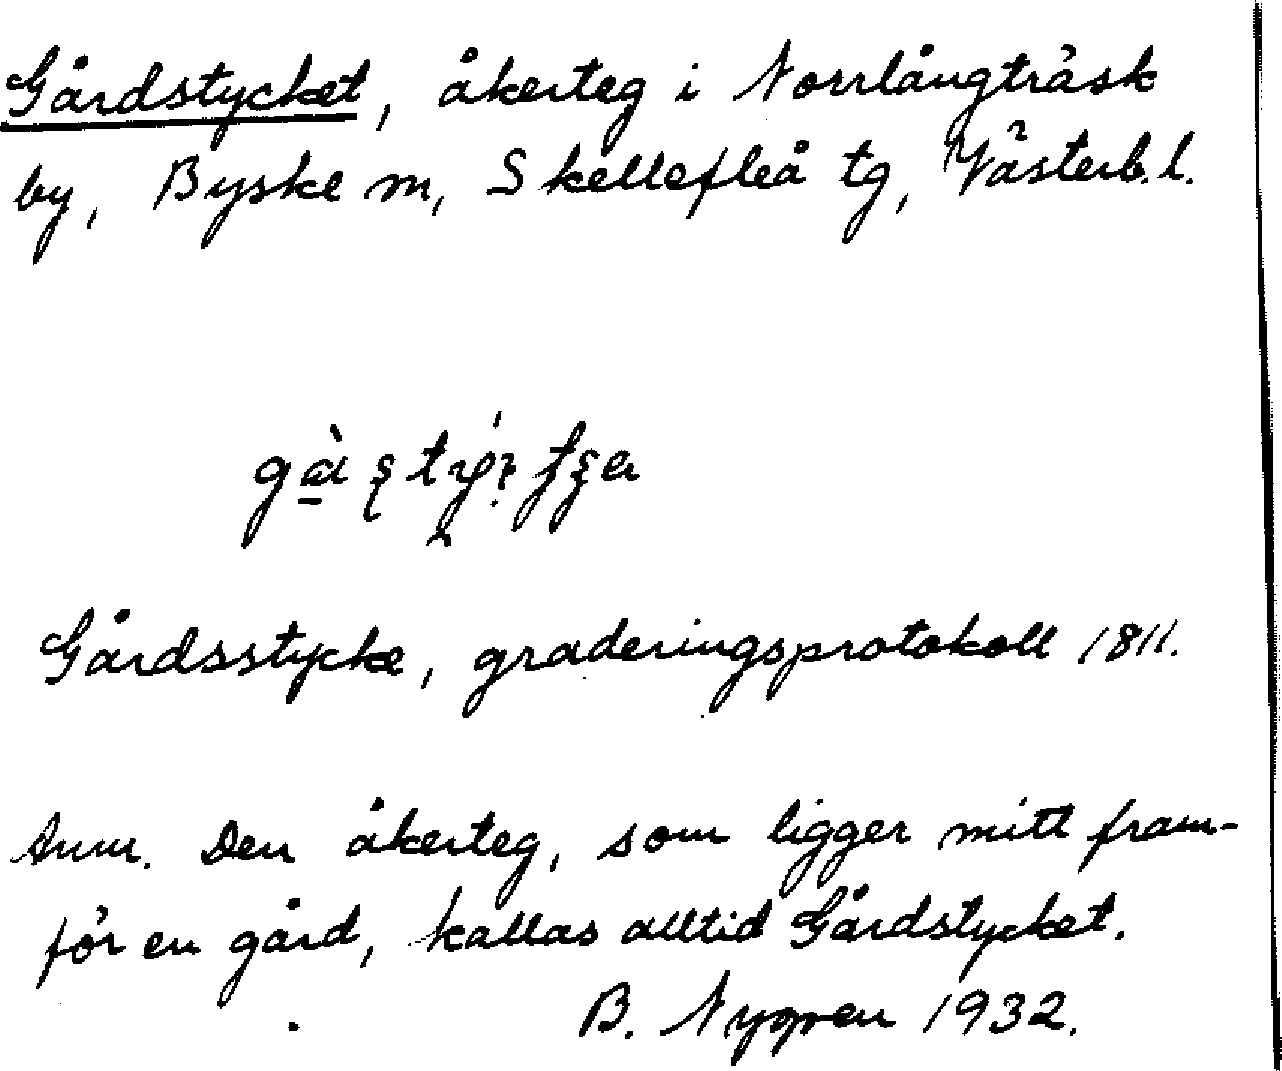 Gårdstycket, åkerteg i Norrlångträsk
by, Byske m, Skellefleå tg, Västerb.l.
Gårdsstycke, graderingsprotokoll 1811.
Anm. Den åkerteg, som ligger mitt fram-
för en gård, kallas alltid Gårdstycket.
B. Nygren 1932.